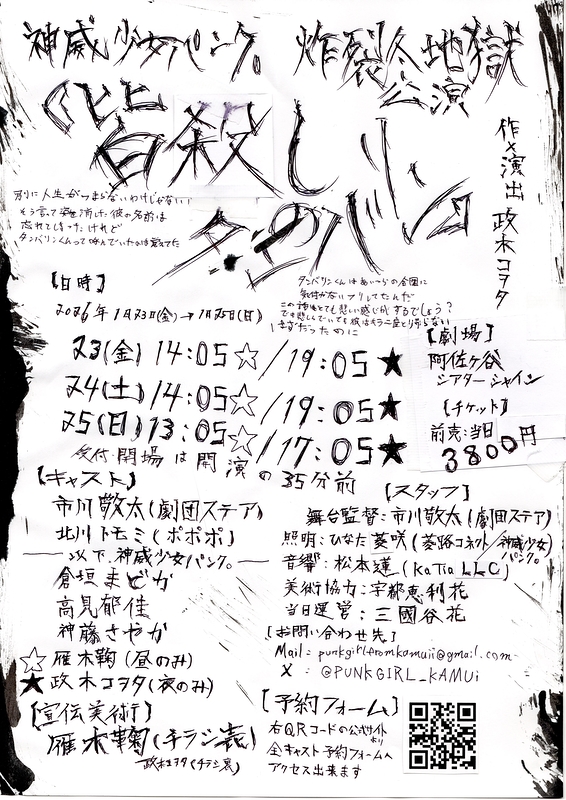 神威少女パンク。 炸裂冬地獄
公演
皆殺し
タンバリン
作×演出 政木コヲタ
別に人生がつまらないわけじゃない
そう言って姿消した彼の名前は
忘れてしまったけれど
タンバリンくんって呼んでいたのは覚えてた
タンバリンくんはあいつらの合図に
気付かないフリしてたんだ
この
でも悲しんでいても
しまずだったのに
【日時】
2026年1月23日(金)→1月25日(日)
23(金)14:05☆/19:05★
24(土)14:05☆/19:05★
25(日)13:05☆/17:05★
受付・開場は開演の35分前
【劇場】
阿佐ヶ谷
シアターシャイン
【チケット】
前売・当日
3800円
【キャスト】
市川敬太(劇団ステア)
北川トモミ(ポポポ)
以下、神威少女パンク。
倉垣まどか
高見郁佳
神藤さやか
☆雁木鞠(昼のみ)
★政木コヲタ(夜のみ)
【宣伝美術】
雁木鞠(チラシ表)
政木コヲタ(チラシ裏)
【スタッフ】
舞台監督:市川敬太(劇団ステア)
照明:ひなた葵咲(葵路コネクト/神威少女パンク。)
音響:松本蓮(KaTia LLC)
美術協力:宇都恵利花
当日運営:三國谷花
【お問い合わせ先】
Mail=punkgirlfromkamuii@gmail.com
X = @PUNKGIRL_KAMUi
【予約フォーム】
右QRコードの公式サイトより
全キャスト予約フォームへ
アクセス出来ます